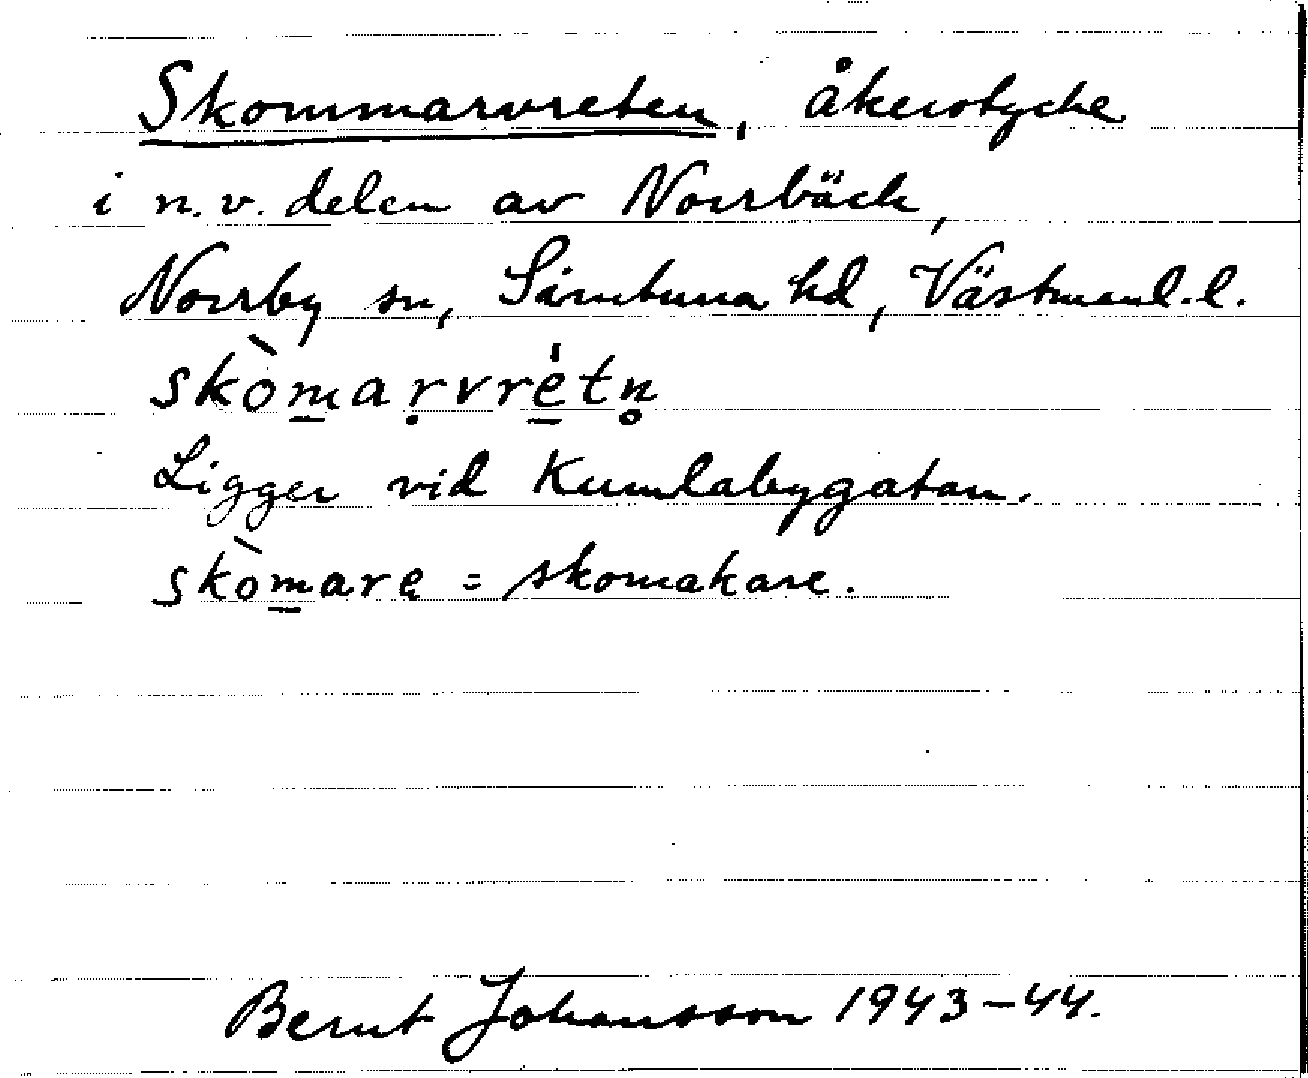 Skommarvreten, åkerstycke
i n.v. delen av Norrbäck,
Norrby sn, Simtuna hd, Västmanl. l.
skòm̲aṛvrė̲́tn̥
Ligger vid Kumlabygatan.
skòm̲arę = skomakare.
Bernt Johansson 1943-44.